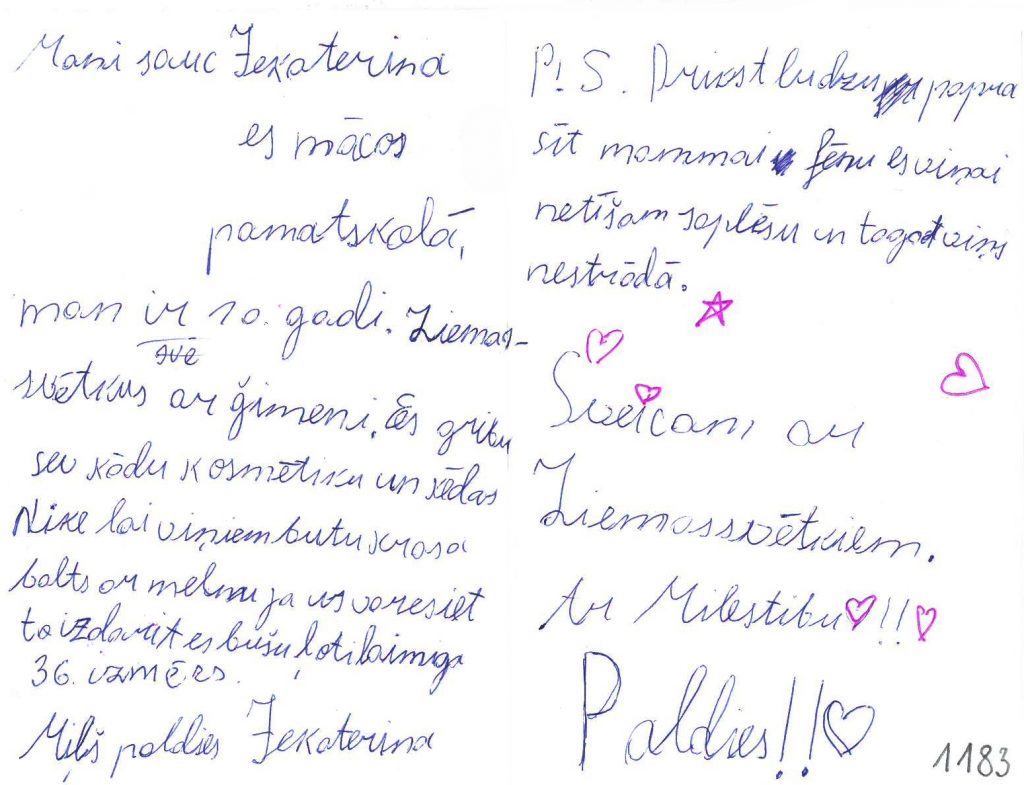 Mani sauc Jekaterina
es mācos
pamatskolā,
man ir 10. gadi. Ziemas-
svētkus ar ģimeni. Es gribu
sev kādu kosmētiku un kēdas
Nike lai viņiem butu krasa
balts ar melnu ja us varesiet
to izdarīt es būšu ļoti laimiga
36. izmērs.
Miļš paldies Jekaterina
P! S. Drikst ludzu popra
sīt mammai fēnu es viņai
netīšam saplēsu un tagad viņs
nestrādā.
Sveicam ar
Ziemassvētkiem.
Ar Milestibu !!
Paldies!!
1183